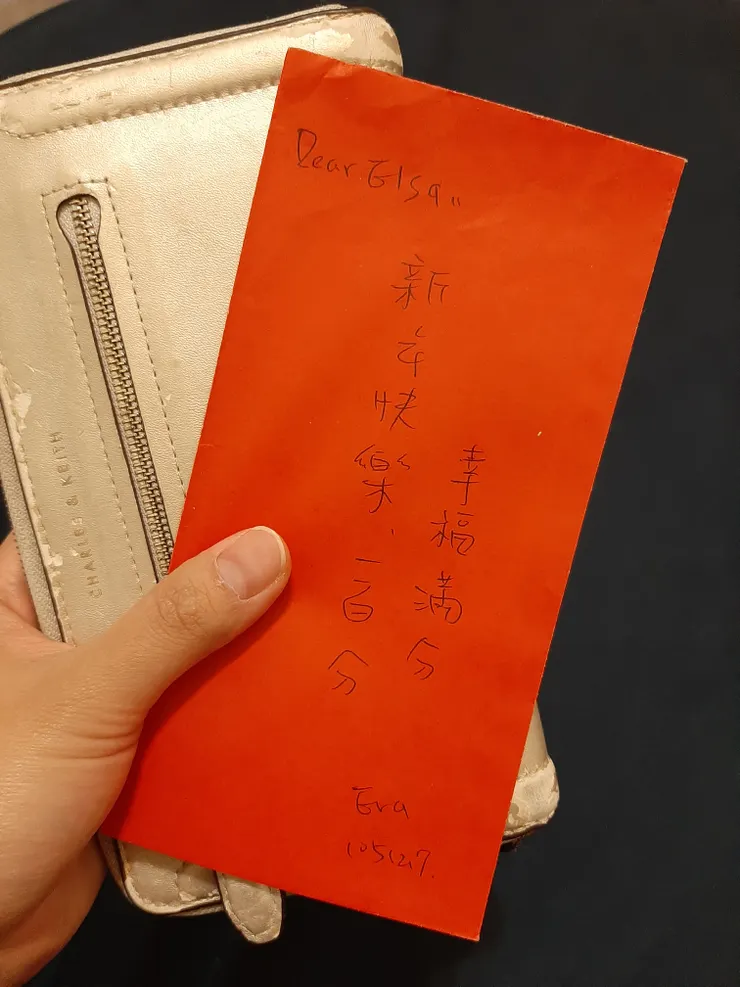 Dear Elsa,,
新年快樂、一百分
幸福滿分
Eva
1051217.
CHARLES & KEITH